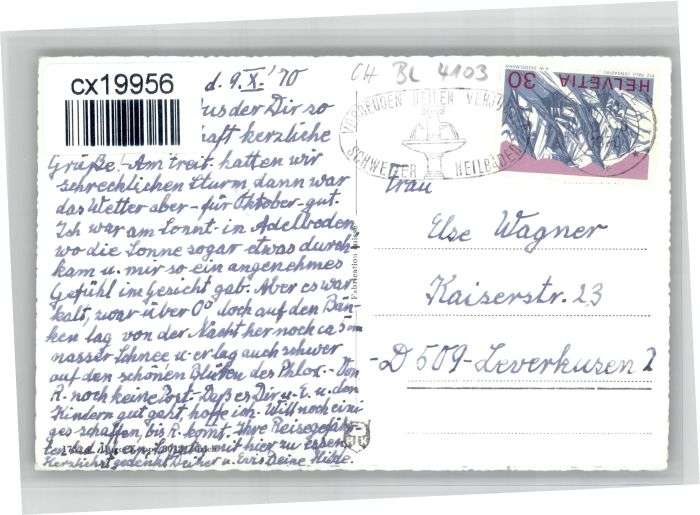 cx19956
d. 9. X. '70
aus der Dir so
haft kerzliche
Grüße! Am Freit. hatten wir
schrecklichen Sturm dann war
das Wetter aber - für Oktober - gut.
Ich war am Sonnt. in Adelboden
wo die Sonne sogar etwas durch-
kam u. mir so ein angenehmes
Gefühl im Gesicht gab. Aber es war
kalt, zwar über 0° doch auf den Bän-
ken lag von der Nacht her noch ca 5 cm
nasser Schnee u. er lag auch schwer
auf den schönen Blüten des Phlox. - Von
R. noch keine Post. - Daß es Dir u. E. u. den
Kindern gut geht, hoffe ich. Will noch eini-
ges schaffen, bis R. kommt. Ihre Reisegefähr-
am Sonntag mit hier zu Essen.
Herzlichst gedenkt Deiner u. Evis Deine Hilde.
Fabrication suisse
CH BL 4103
SCHWEIZER HEILBÄDER
HELVETIA
30
Frau
Else Wagner
Kaiserstr. 23
-D 509-Leverkusen 2